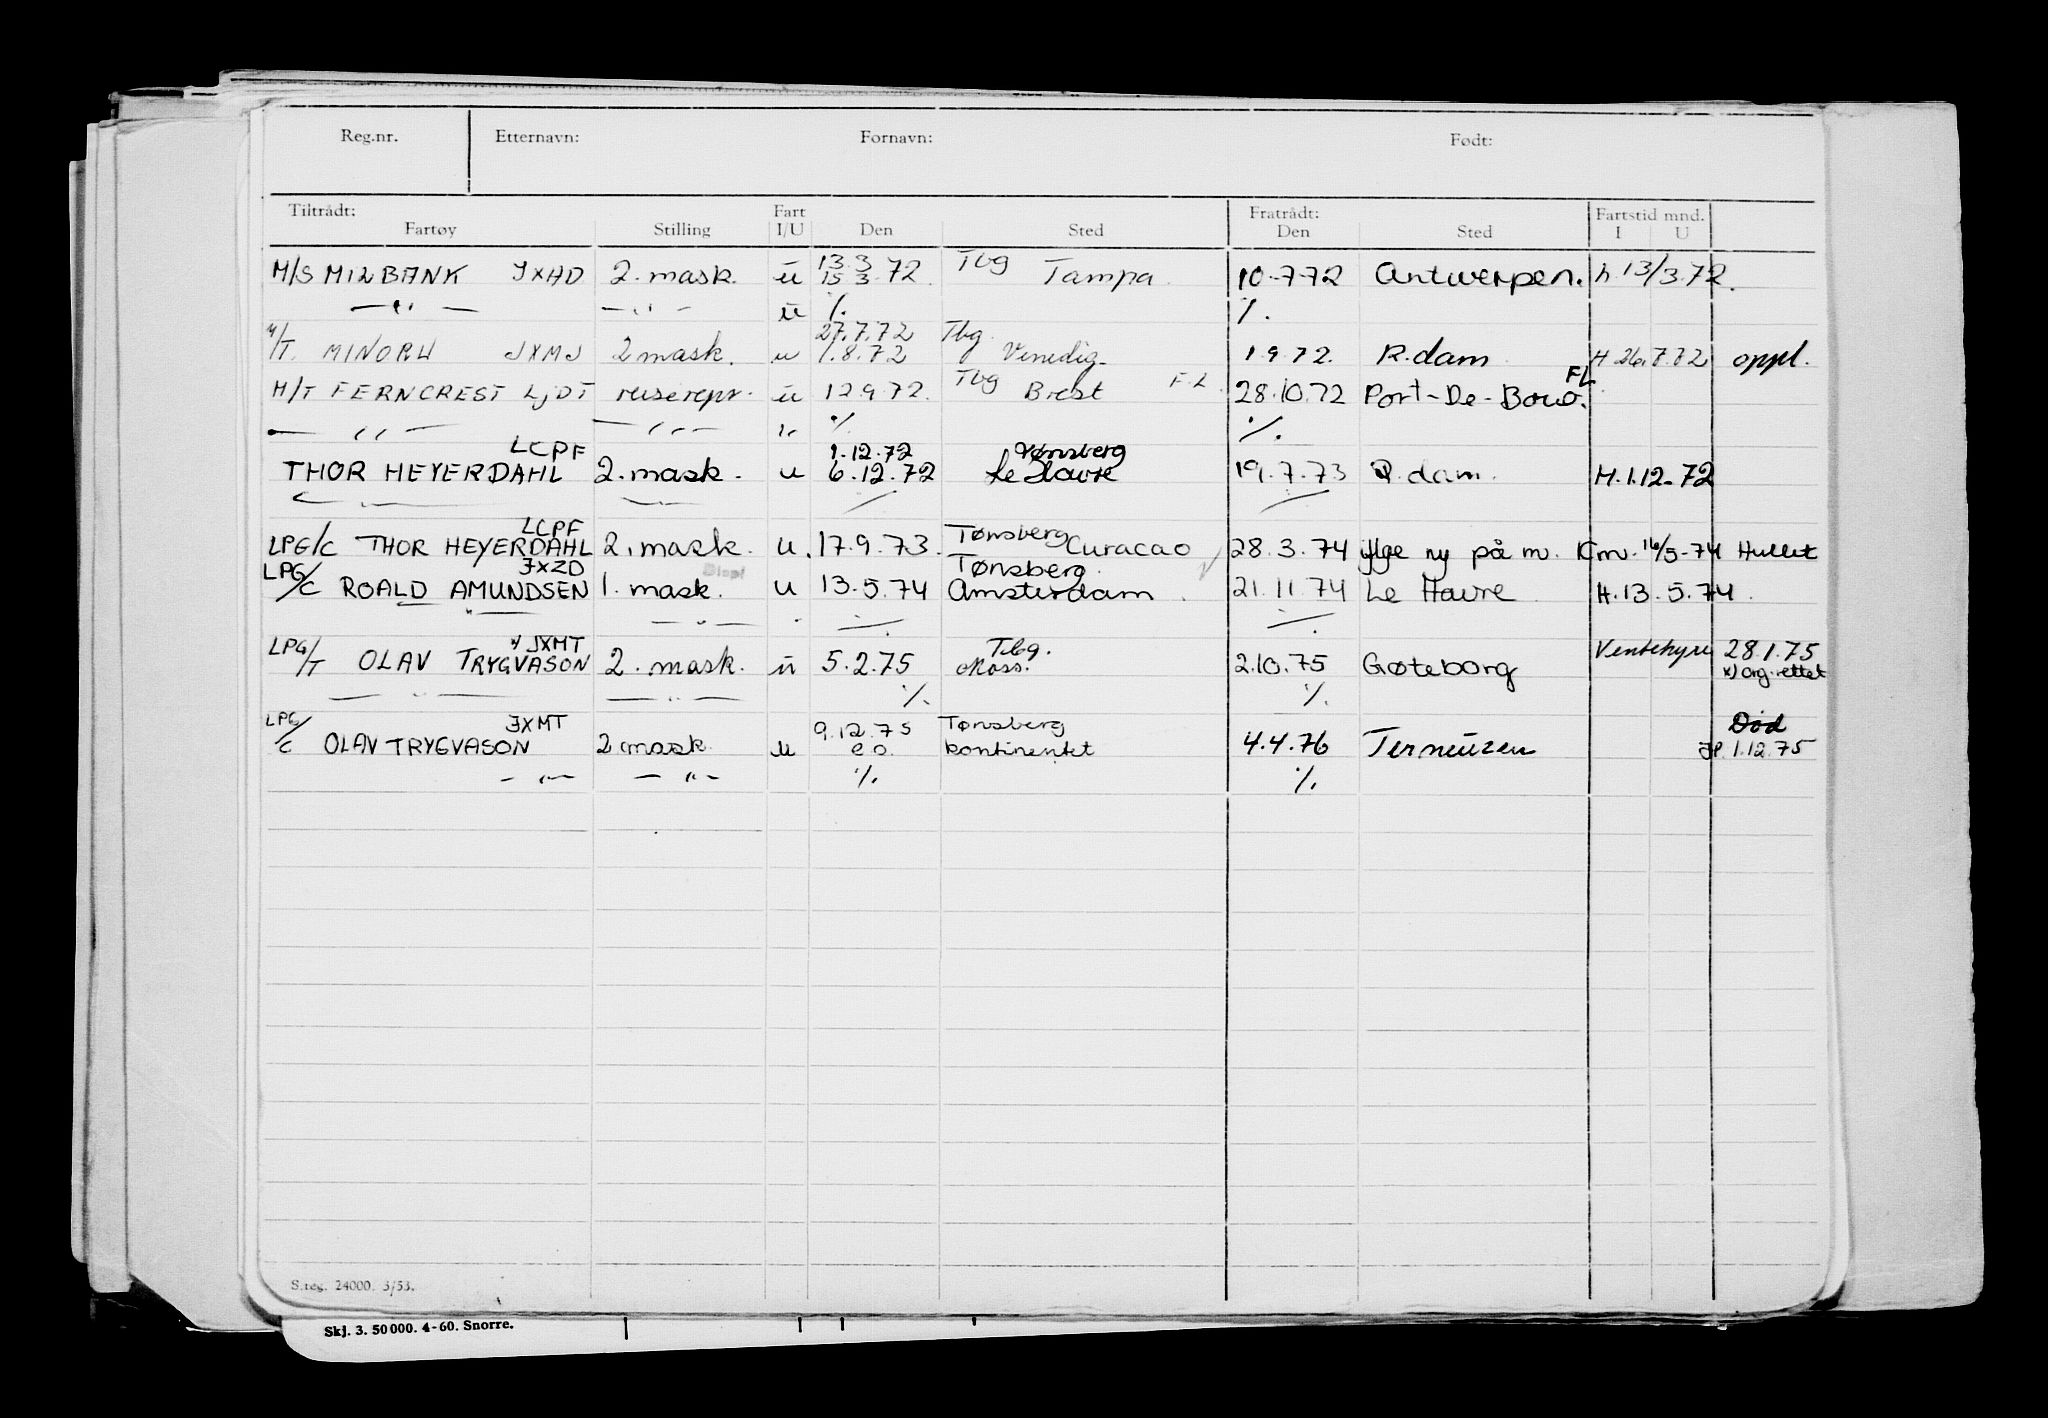 Reg.nr. Etternavn: Fornavn: Født:
Tiltrådt: Fart Fratrådt: Fartstid mnd.
Fartøy Stilling I/U Den Sted Den Sted I U
13.3 Tbg
M/S MILBANK JXHD 2. mask. u 15 3.72. Tampa. 10-7-72 Antwerpen. h 13/3.72.
— " — — " — u ./. ./.
27.7.72 Tbg
M/T. MINORU JXMJ 2 mask. u 1.8.72 Venedig 1.9.72. R.dam H 26.7.72 oppl.
Tbg F.L. FL
M/T FERNCREST LJDT reiserepr. u 12.9.72. Brest 28.10.72 Port-De-Bouc.
— " — — " — " ./. ./.
LCPF 1.12.72 Tønsberg
THOR HEYERDAHL 2. mask. u 6.12.72 Le Havre 19.7.73 R.dam. H.1.12-72
LCPF Tønsberg
LPG/C THOR HEYERDAHL 2. mask. u. 17.9.73. Curacao 28.3.74 iflge ny på m. Km. 16/5-74 Hullet
JXZD Tønsberg.
LPG/C ROALD AMUNDSEN 1. mask. u 13.5.74 Amsterdam. 21.11.74 Le Havre H.13.5.74.
" — " — ./. ./.
x) JXMT Tbg. Ventehyre 28.1.75
LPG/T OLAV TRYGVASON 2. mask. u 5.2.75 Moss. 2.10.75 Gøteborg x) org. rettet
— " — — " — ./. ./.
JXMT 9.12.75 Tønsberg Död
LPG/C OLAV TRYGVASON 2 mask. u e.o. kontinentet 4.4.76 Terneuzen JP. 1.12.75
— " — — " — ./. ./.
S.reg. 24000. 3/53.
Skj. 3. 50 000. 4-60. Snorre.